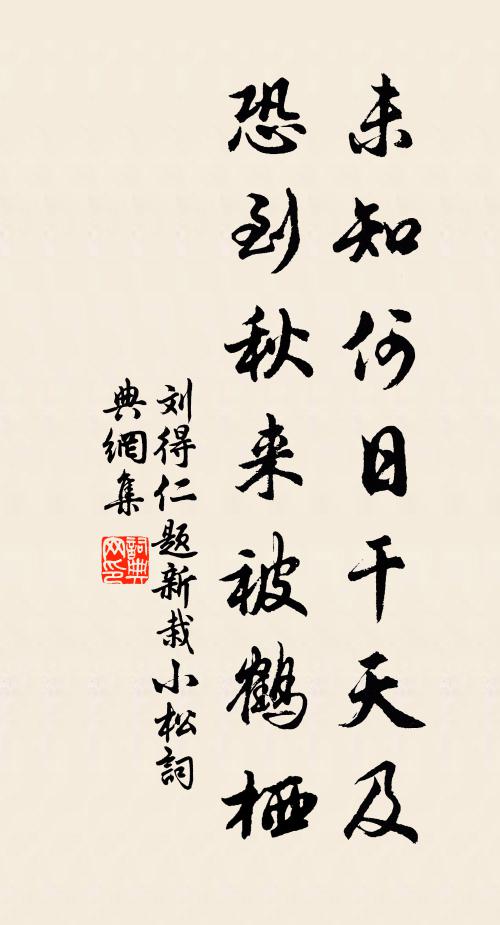 未知何日干天及
恐到秋来被鹤栖
刘得仁题新栽小松詞
典網集
詞典
网印